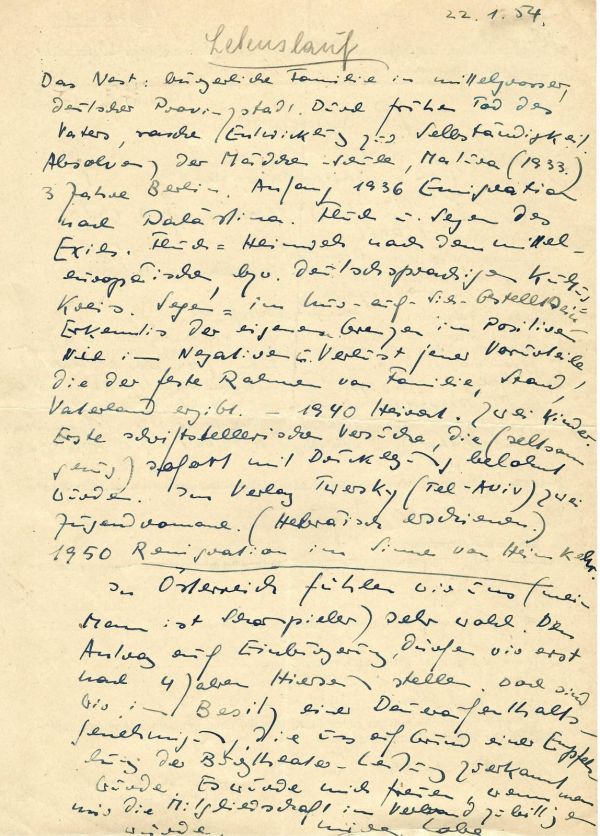 22.1.54.
Lebenslauf
Das Nest: bürgerliche Familie in mittelgrosser,
deutscher Provinzstadt. Durch frühen Tod des
Vaters, rasche Entwicklung zur Selbständigkeit.
Absolvenz der Mädchenschule, Matura (1933.)
3 Jahre Berlin. Anfang 1936 Emigration
nach Palästina. Fluch u. Segen des
Exils. Fluch = Heimweh nach dem mittel-
europäischen, bzw. deutschsprachigen Kultur-
Kreis. Segen = im Nur-auf-sich-gestellt-Sein
Erkenntnis der eigenen Grenzen im Positiven
wie im Negativen u. Verlust jener Vorurteile
die der feste Rahmen von Familie, Stand,
Vaterland ergibt. – 1940 Heirat. Zwei Kinder.
Erste schriftstellerische Versuche, die (seltsam
genug) sofort mit Drucklegung belohnt
wurden. Im Verlag Twersky (Tel-Aviv) zwei
Jugendromane. (Hebräisch erschienen.)
1950 Remigration im Sinne von Heimkehr.
In Österreich fühlen wir uns (mein
Mann ist Schauspieler) sehr wohl. Den
Antrag auf Einbürgerung dürfen wir erst
nach 4 Jahren Hiersein stellen, doch sind
wir im Besitz einer Daueraufenthalts-
genehmigung, die uns auf Grund einer Empfeh-
lung der Burgtheater-Leitung zuerkannt
wurde. Es würde mich freuen, wenn man
mir die Mitgliedschaft im Verband zubilligen
würde.